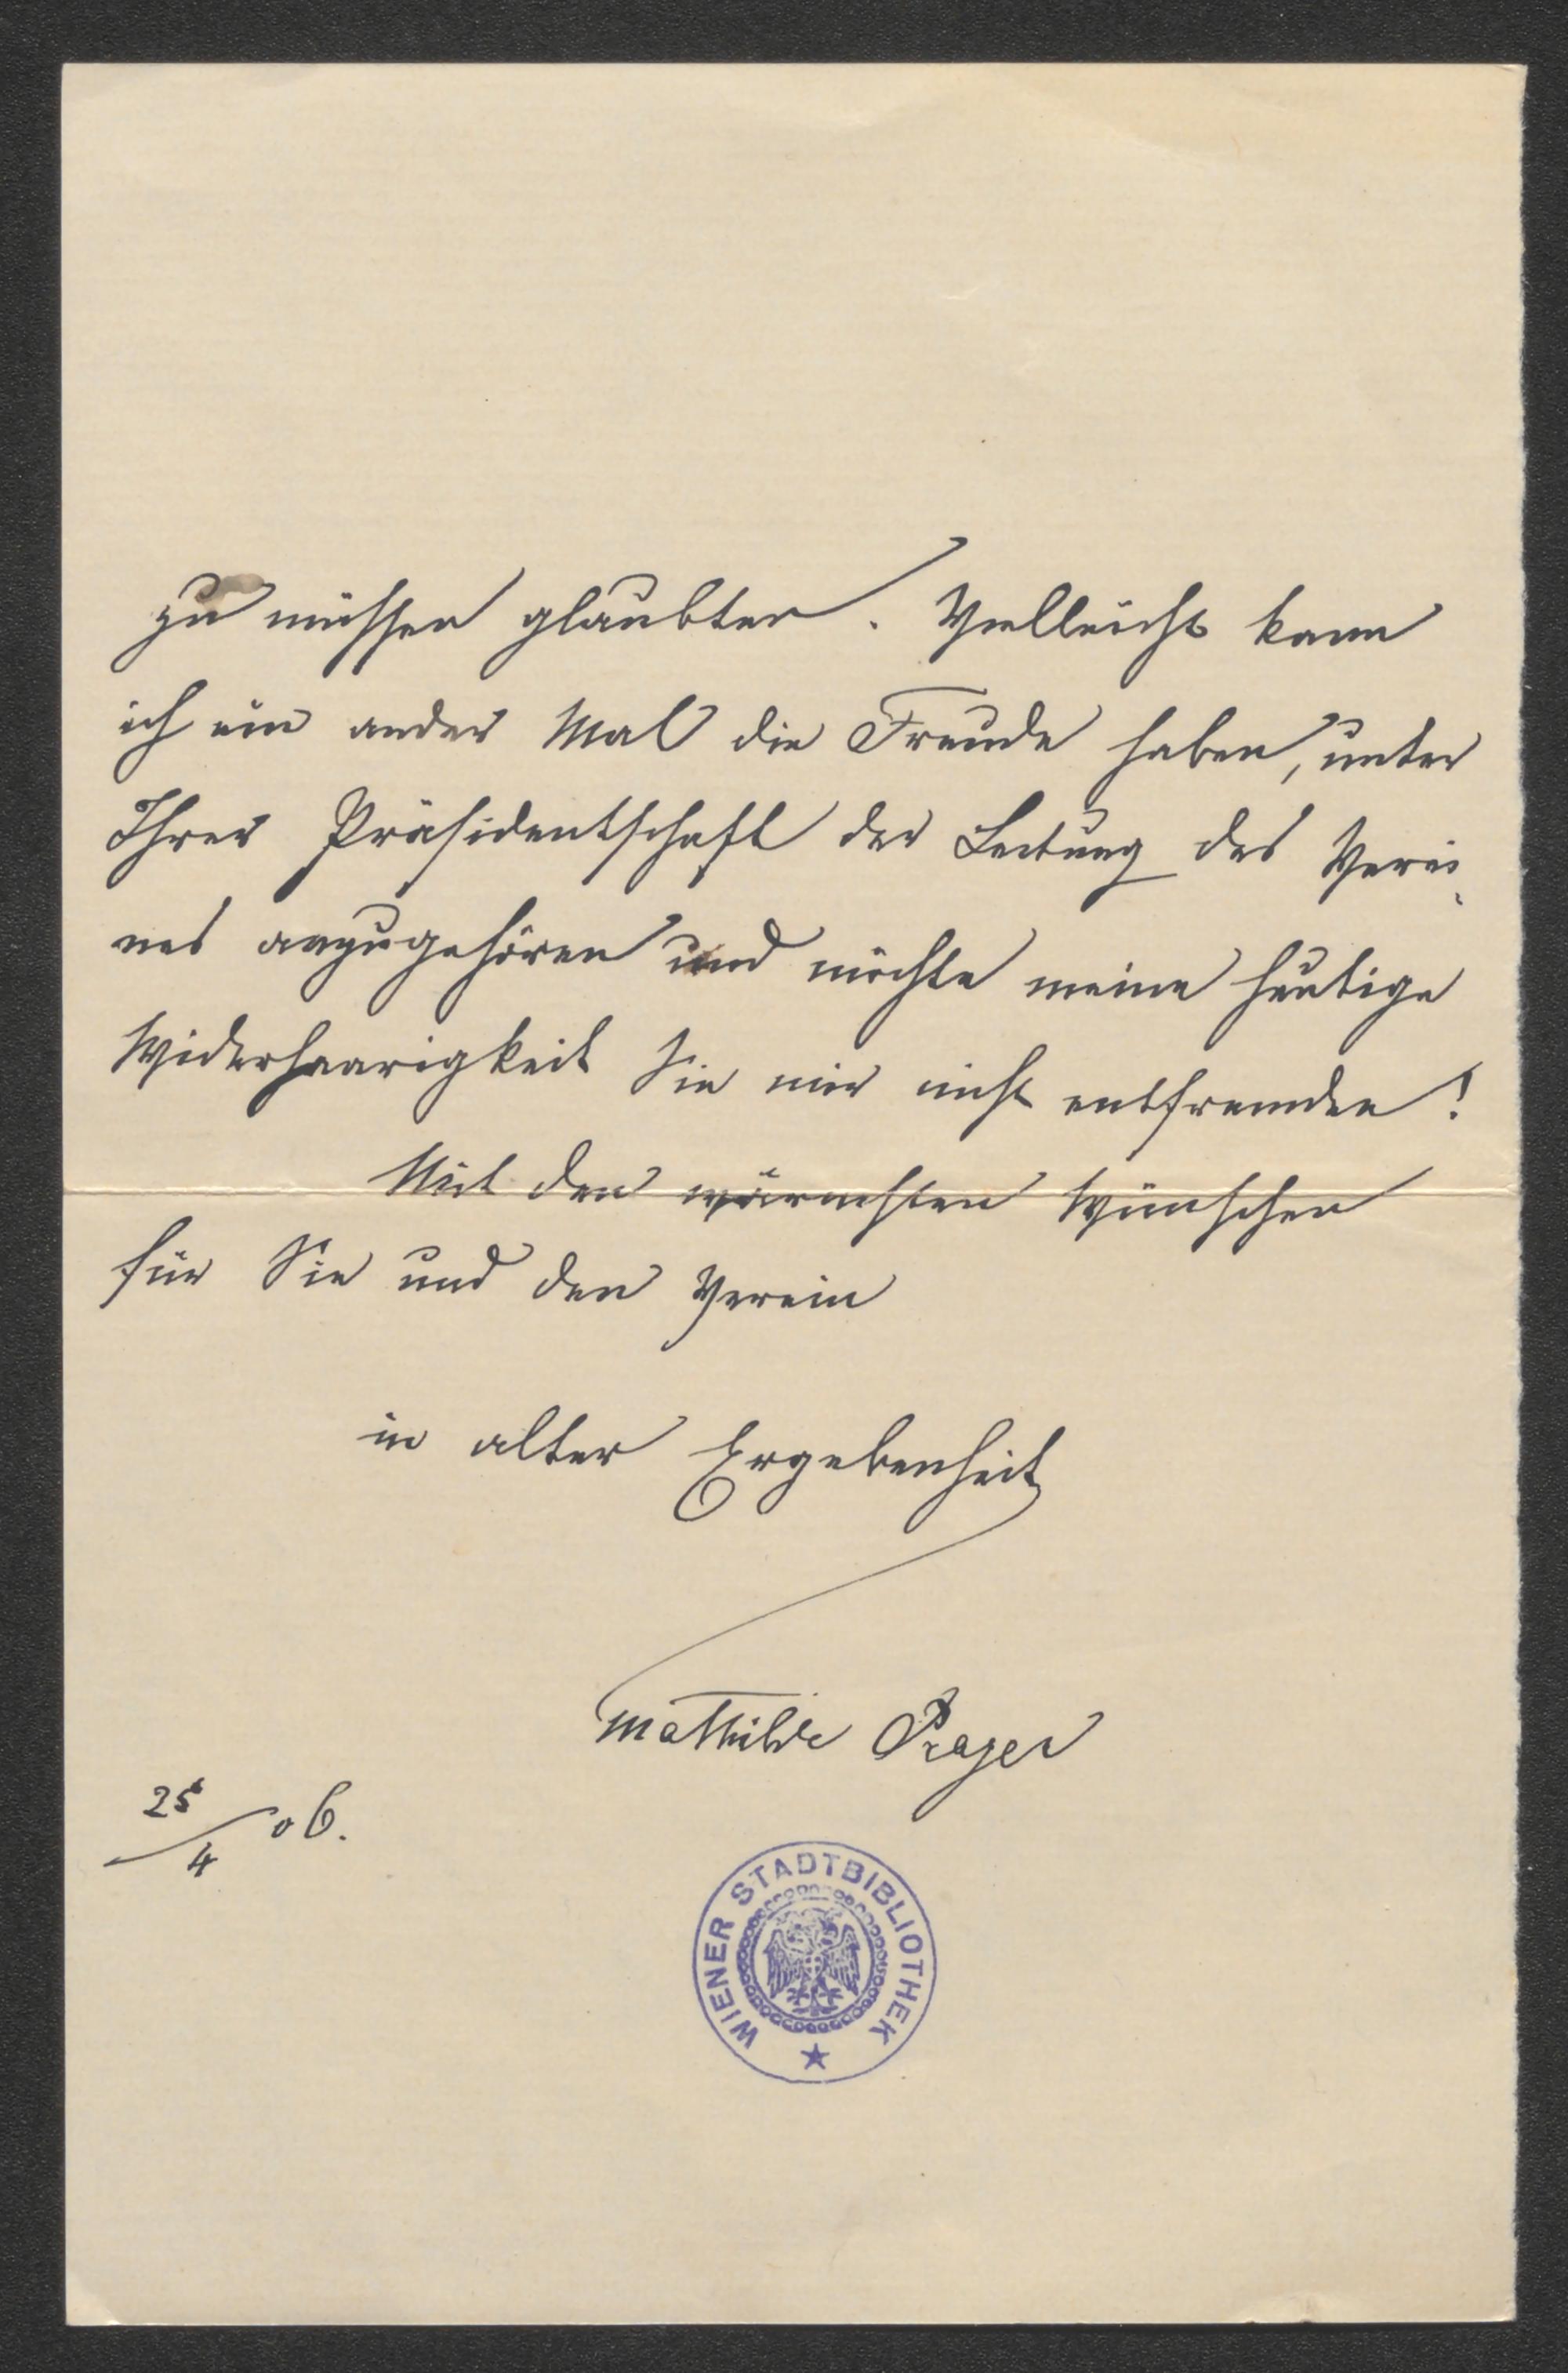 zu müssen glaubten. Vielleicht kann
ich ein ander Mal die Freude haben, unter
Ihrer Präsidentschaft der Leitung des Verei-
nes anzugehören und möchte meine heutige
Widerhaarigkeit Sie mir nicht entfremden!
Mit den wärmsten Wünschen
für Sie und den Verein
in alter Ergebenheit
Mathilde Prager
25/4 06.
WIENER STADTBIBLIOTHEK